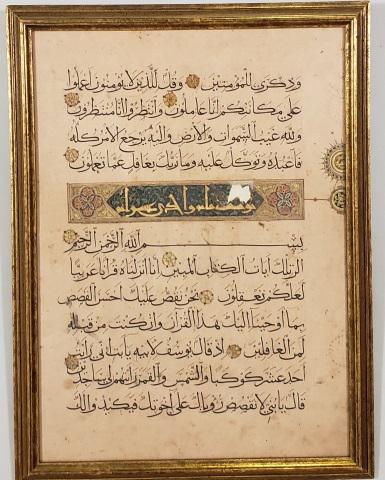 وذكرى للمؤمنين وقل للذين لا يؤمنون اعملوا
على مكانتكم انا عاملون وانتظروا انا منتظرون
ولله غيب السموات والارض واليه يرجع الامر كله
فاعبده وتوكل عليه وما ربك بغافل عما تعملون
بسم الله الرحمن الرحيم
الر تلك ايات الكتاب المبين انا انزلناه قرانا عربيا
لعلكم تعقلون نحن نقص عليك احسن القصص
بما اوحينا اليك هذا القران وان كنت من قبله
لمن الغافلين اذ قال يوسف لابيه يا ابت اني رايت
احد عشر كوكبا والشمس والقمر رايتهم لي ساجدين
قال يا بني لا تقصص رؤياك على اخوتك فيكيدوا لك